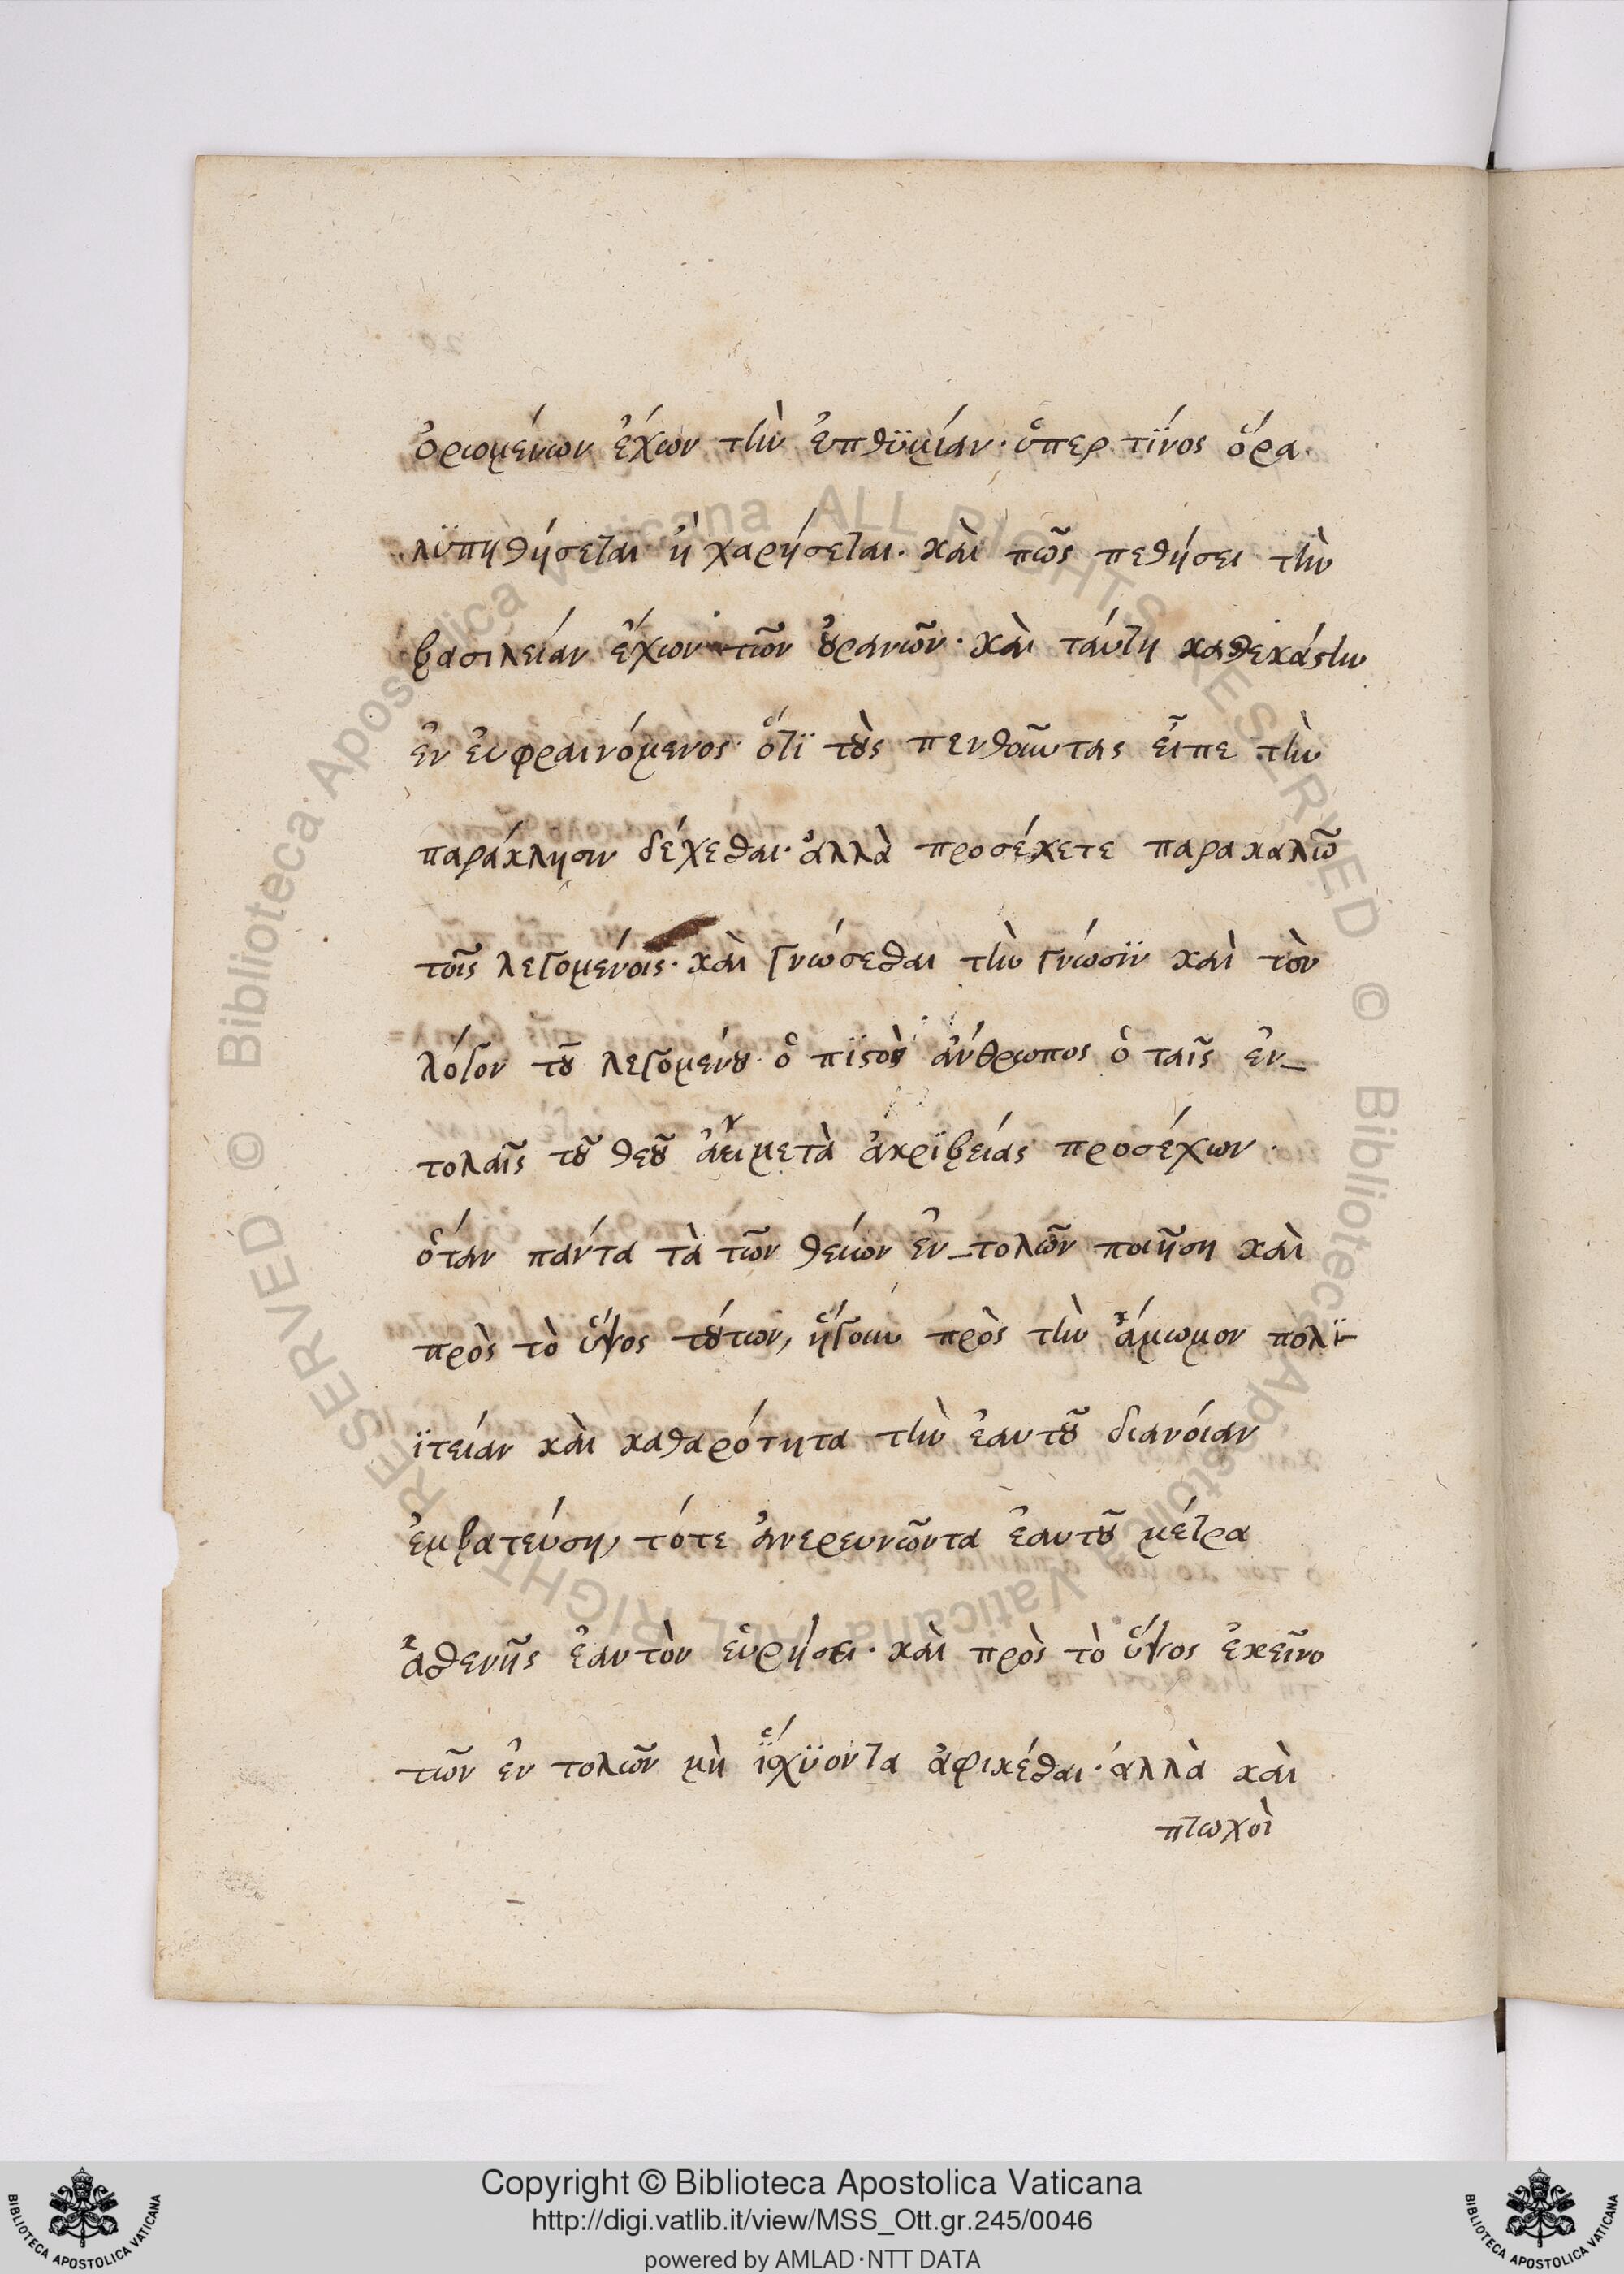 ὁρωμένων ἐχων τὴν ἐπθϋμίαν· ὑπερ τίνος ὅρα·
λϋπηθήσεται ἢ χαρήσεται· καὶ πῶς πεθήσει τὴν
βασιλείαν ἔχων τῶν οὐρανῶν· καὶ ταύτη καθεκάστην
ἐν ἐυφραινόμενος· ὅτϊ τοὺς πενθοῦντας εἶπε τὴν
παράκλησιν δέχεσθαι· ἀλλὰ προσέχετε παρακαλῶ
τοῖς λεγομένοις· καὶ γνώσεσθαι τὴν γνώσϊν καὶ τὸν
λόγον τοῦ λεγομένου· ὁ πϊστὸς ἄνθρωπος ὁ ταῖς ἐν_
τολαῖς τοῦ θεοῦ ἀεὶ μετὰ ἀκρϊβείας προσέχων·
ὅταν πάντα τὰ τῶν θείων ἐν_τολῶν ποιῆση καὶ
πρὸς τὸ ὕψος τούτων, ἤγουν πρὸς τὴν ἄμωμον πολϊ-
ϊτείαν καὶ καθαρότητα τὴν ἑαυτοῦ διανόιαν
ἐμβατεύση, τότε ἀνερευνῶντα ἑαυτοῦ μέτρα
ἀσθενῆς ἑαυτὸν εὑρήσει· καὶ πρὸς τὸ ὕψος ἐκεῖνο
τῶν ἐν τολῶν μὴ ἴσχϋοντα ἀφικέσθαι· ἀλλὰ καὶ
πτωχοὶ
Copyright © Biblioteca Apostolica Vaticana
http://digi.vatlib.it/view/MSS_Ott.gr.245/0046
powered by AMLAD·NTT DATA
BIBLIOTECA APOSTOLICA VATICANA
BIBLIOTECA APOSTOLICA VATICANA
© Biblioteca Apostolica Vaticana ALL RIGHTS RESERVED
© Biblioteca Apostolica Vaticana ALL RIGHT RESERVED